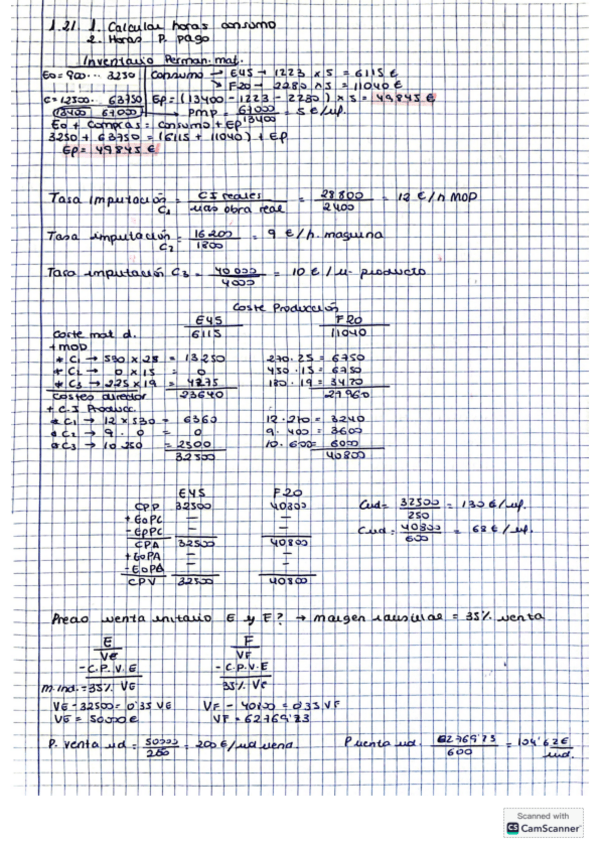 1.21 1. Calcular horas consumo
2. Horas P. pago
Inventario Perman. mat.
Eo = 900 ... 3250 Consumo → E45 → 1223 x 5 = 6115 €
→ F20 → 2280 x 5 = 11040 €
C = 12500 ... 63750 Ep = (13400 - 1223 - 2280) x 5 = 49845 €
13400 67000 → PMP = 67000 / 13400 = 5 €/uf.
Eo + Compras = Consumo + Ep
3250 + 63750 = (6115 + 11040) + Ep
Ep = 49845 €
Tasa imputación C1 = CI reales / obra real = 28800 / 2400 = 12 €/h MOD
Tasa imputación C2 = 16200 / 1800 = 9 €/h. maquina
Tasa imputación C3 = 40000 / 4000 = 10 €/u. producto
Coste Producción
E45 F20
Coste mat d. 6115 11040
+ MOD
* C1 → 530 x 25 = 13250 270 · 25 = 6750
* C2 → 0 x 15 = 0 450 · 15 = 6750
* C3 → 225 x 19 = 4275 180 · 19 = 3420
Costes director 23640 27960
+ C.I Producc.
* C1 → 12 x 530 = 6360 12 · 270 = 3240
* C2 → 9 · 0 = 0 9 · 400 = 3600
* C3 → 10 250 = 2500 10 · 600 = 6000
32500 40800
E45 F20
CPP 32500 40800 Cud = 32500 / 250 = 130 €/uf.
+ EoPC — —
- EfPC — — Cud = 40800 / 600 = 68 €/uf.
CPA 32500 40800
+ EoPA — —
- EoPA — —
CPV 32500 40800
Precio venta unitario E y F? → margen = 35% venta
E F
VE VF
- C.P.V.E - C.P.V.E
m. ind. = 35% VE 35% VF
VE - 32500 = 0'35 VE VF - 40800 = 0'35 VF
VE = 50000 € VF = 62769'23
P. venta ud = 50000 / 250 = 200 €/ud vend P venta ud. 62769'23 / 600 = 104'62 € / ud.
Scanned with
CS CamScanner